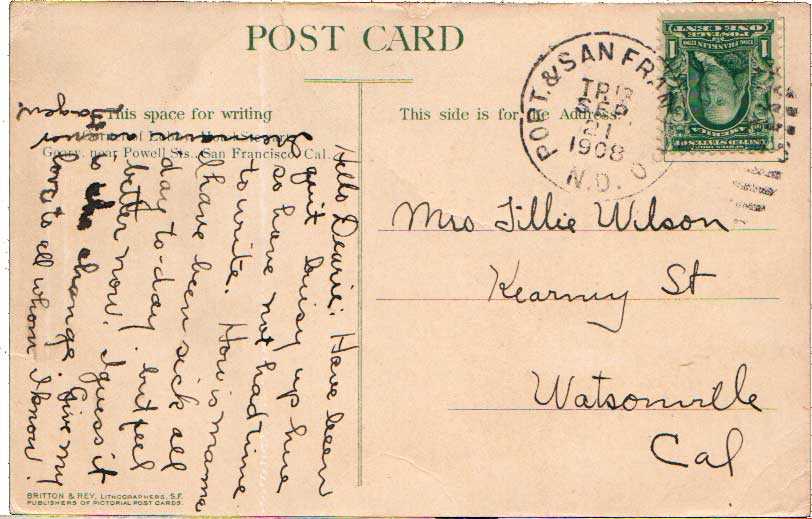 POST CARD
This space for writing
This side is for the Address.
Geary, near Powell Sts., San Francisco, Cal.
PORT. & SAN FRAN
TR 13
SEP.
21
1908
N.D.
ONE CENT
POSTAGE
1
1
Hello Dearie: Have been
quit buisy up hire
so have not had time
to write. How is mama
I have been sick all
day to-day. but feel
better now. I guess it
is the change. Give my
love to all whom I know.
Mrs Tillie Wilson
Kearney St
Watsonville
Cal
BRITTON & REY, LITHOGRAPHERS, S.F.
PUBLISHERS OF PICTORIAL POST CARDS.